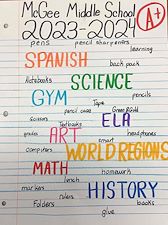 McGee Middle School
2023-2024
A+
pens pencil sharpeners
SPANISH learning
back pack
Notebooks SCIENCE
GYM pencils
Tape
pencil case Green Build
Scissors ELA
Textbooks
grades ART smart headphones
computers WORLD REGIONS
MATH homework
lunch
markers HISTORY
Folders rulers
books
glue